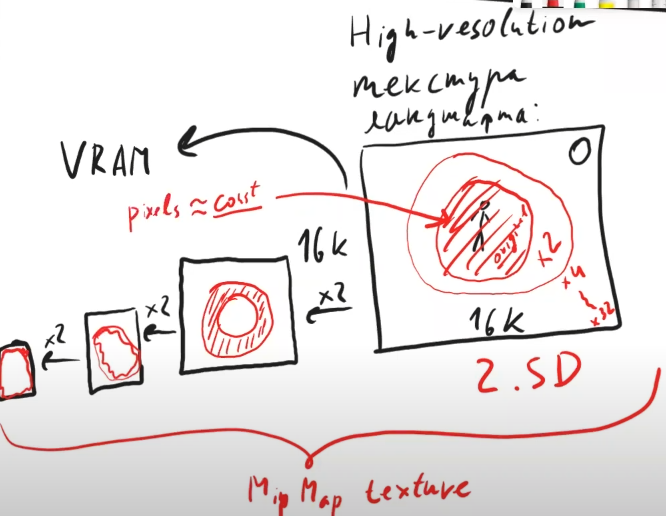 High-resolution
текстура
ландшафта:
VRAM
pixels ≈ const
original
x2
x4
x32
16k
x2
x2
x2
16k
2.5D
MipMap texture